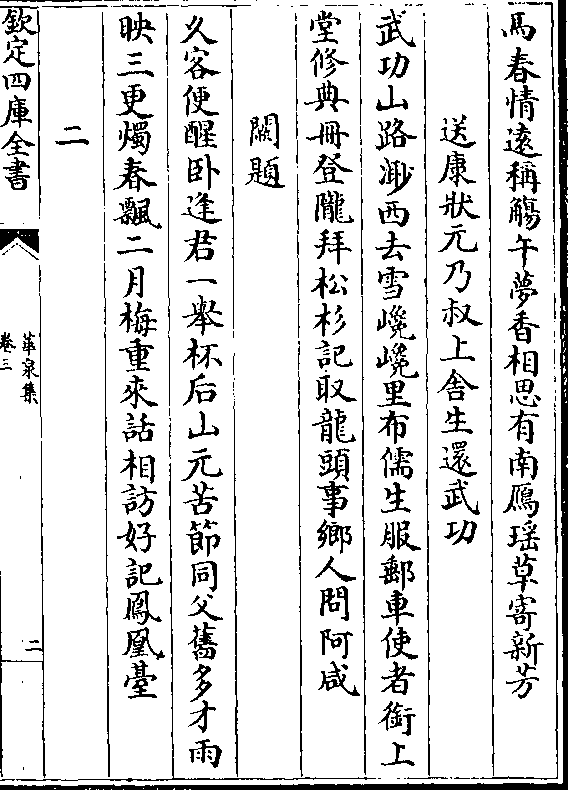 馬春情遠稱觴午夢香相思有南鴈瑶草寄新芳
送康狀元乃叔上舍生還武功
武功山路渺西去雪巉巉里布儒生服郵車使者銜上
堂修典冊登隴拜松杉記取龍頭事鄉人問阿咸
闕題
久客便醒卧逢君一舉杯后山元苦節同父舊多才雨
映三更燭春飄二月梅重來話相訪好記鳳凰臺
二
欽定四庫全書
華泉集
卷三
二